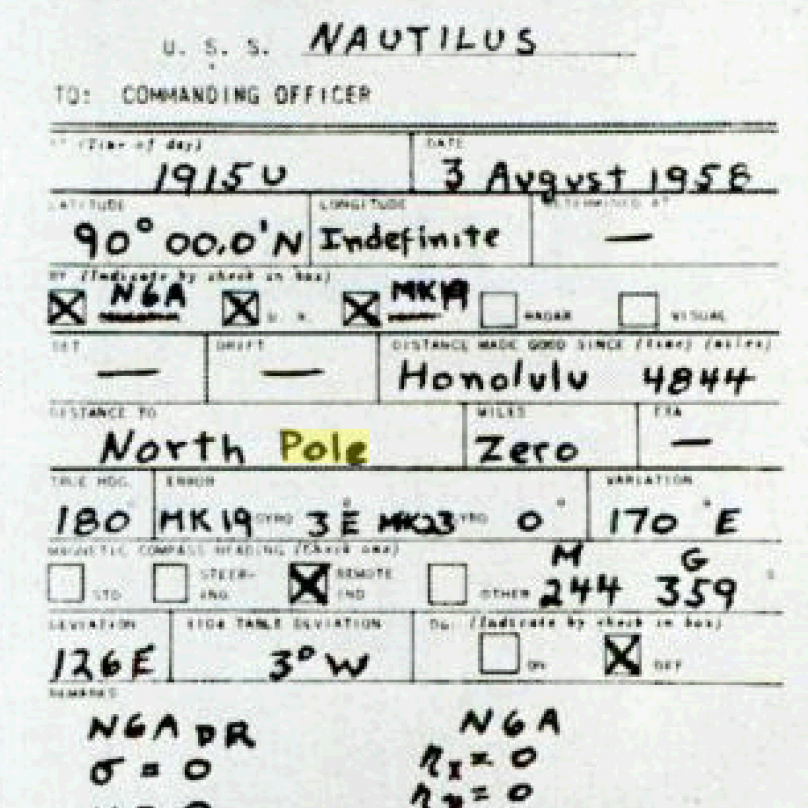 U. S. S. NAUTILUS
TO: COMMANDING OFFICER
(Time of day) DATE
1915U 3 August 1958
LATITUDE LONGITUDE DETERMINED AT
90° 00.0'N Indefinite —
BY (Indicate by check in box)
N6A MK19 RADAR VISUAL
SET DRIFT DISTANCE MADE GOOD SINCE (time) (miles)
— — Honolulu 4844
DISTANCE TO MILES ETA
North Pole Zero —
TRUE HDG. ERROR VARIATION
180° MK19 GYRO 3 E° MK23 GYRO 0° 170° E
MAGNETIC COMPASS HEADING (Check one) M G
STD STEER- REMOTE
ING IND OTHER 244 359 °
DEVIATION 1104 TABLE DEVIATION DG: (Indicate by check in box)
126E 3° W ON OFF
REMARKS
N6A DR N6A
σ = 0 = 0
= 0